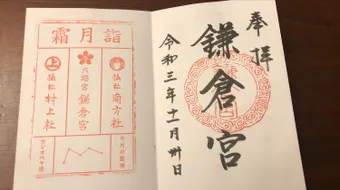 奉拝
鎌倉宮
令和三年十一月卅日
霜月詣
摂社
南方社
大塔宮
鎌倉宮
摂社
村上社